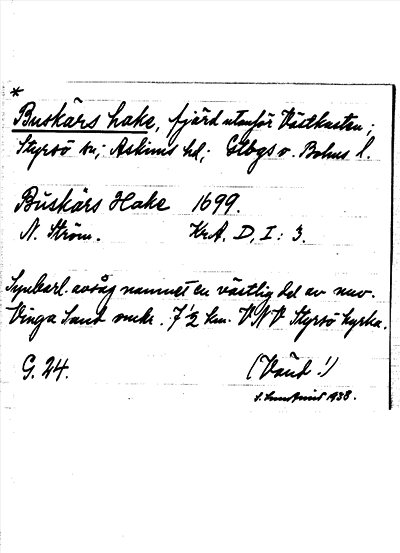 *
Buskärs hake, fjärd utanför Västkusten;
Styrsö sn; Askims hd; Gtbgs o. Bohus l.
Buskärs Hake 1699.
N. Ström. Kr.A. D, I: 3.
Synbarl. avsåg namnet en västlig del av nuv.
Vinga Sand omkr. 7 1/2 km. V N V Styrsö kyrka.
G. 24. (Vänd!)
1938.